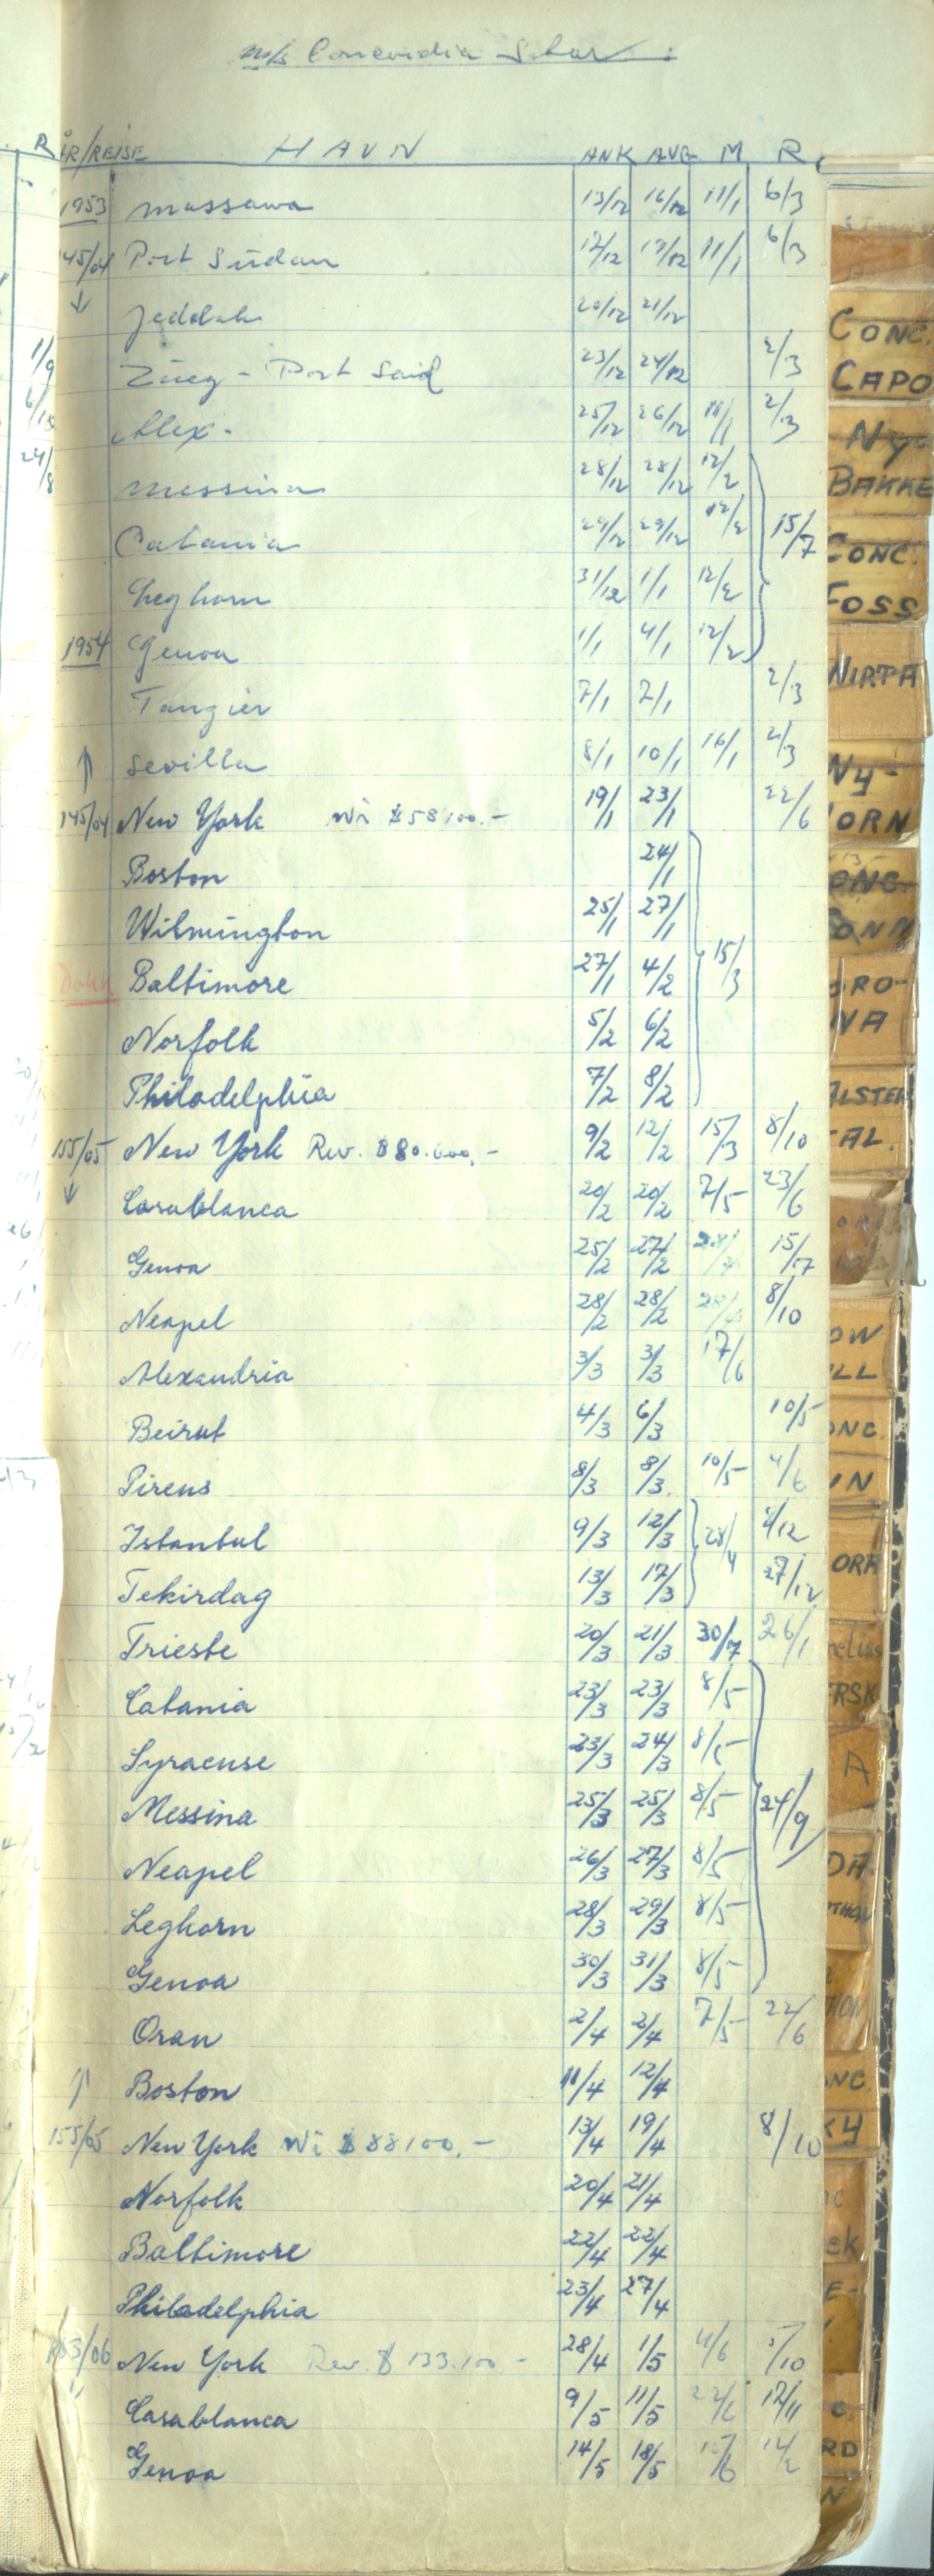 m/s Concordia Star:
R ÅR/REISE HAVN ANK AVG M R
1953 Massawa 13/12 16/12 11/1 6/3
145/04 Port Sudan 17/12 19/12 11/1 6/3
↓ Jeddah 20/12 21/12
1/9 Zuez - Port Said 23/12 24/12 2/3
Alex. 25/12 26/12 2/3
24/8 Messina 28/12 28/12 12/2
Catania 29/12 29/12 12/2 15/7
Leghorn 31/12 1/1 12/2
1954 Genoa 1/1 4/1 12/2
Tangier 7/1 7/1 2/3
↑ Sevilla 8/1 10/1 16/1 2/3
145/04 New York Wi $58100.- 19/1 23/1 22/6
Boston 24/1
Wilmington 25/1 27/1
Dokk Baltimore 27/1 4/2 15/3
Norfolk 5/2 6/2
Philadelphia 7/2 8/2
155/05 New York Rev. $80.000,- 9/2 12/2 15/3 8/10
↓ Casablanca 20/2 20/2 7/5 23/6
Genoa 25/2 27/2 15/7
Neapel 28/2 28/2 8/10
Alexandria 3/3 3/3 17/6
Beirut 4/3 6/3 10/5
Pireus 8/3 8/3. 10/5 4/6
Istanbul 9/3 12/3 28/4
Tekirdag 13/3 17/3 27/12
Trieste 20/3 21/3 30/7 26/1
Catania 23/3 23/3 8/5
Syracuse 23/3 24/3 8/5
Messina 25/3 25/3 8/5 24/9
Neapel 26/3 27/3 8/5
Leghorn 28/3 29/3 8/5
Genoa 30/3 31/3 8/5
Oran 2/4 2/4 7/5 22/6
↑ Boston 11/4 12/4
155/05 New York Wi $88100.- 13/4 19/4 8/10
Norfolk 20/4 21/4
Baltimore 22/4 22/4
Philadelphia 23/4 27/4
163/06 New York Rev. $133.100.- 28/4 1/5 4/6 5/10
Casablanca 9/5 11/5 22/6 12/11
Genoa 14/5 18/5 14/2
CONC.
CAPO
NY-
BAKKE
CONC.
FOSS
NIRPA
NY-
ORN
CONC.
ORO-
NA
ALSTER
TAL.
OW
LL
ONC.
IN
ORA
ERSK
A
DA
THON
NC.
KY
ek
E-
RD
N